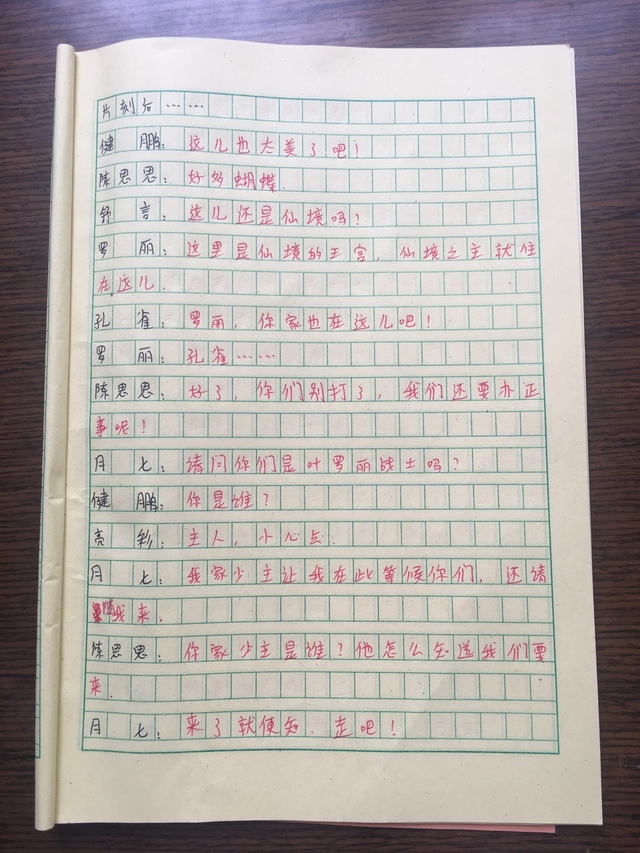 片刻后……
健鹏：这儿也太美了吧！
陈思思：好多蝴蝶.
舒言：这儿还是仙境吗？
罗丽：这里是仙境的王宫，仙境之主就住
在这儿.
孔雀：罗丽，你家也在这儿吧！
罗丽：孔雀……
陈思思：好了，你们别打了，我们还要办正
事呢！
月七：请问你们是叶罗丽战士吗？
健鹏：你是谁？
亮彩：主人，小心点.
月七：我家少主让我在此等候你们，还请
随我来.
陈思思：你家少主是谁？他怎么知道我们要
来.
月七：来了就便知.走吧！